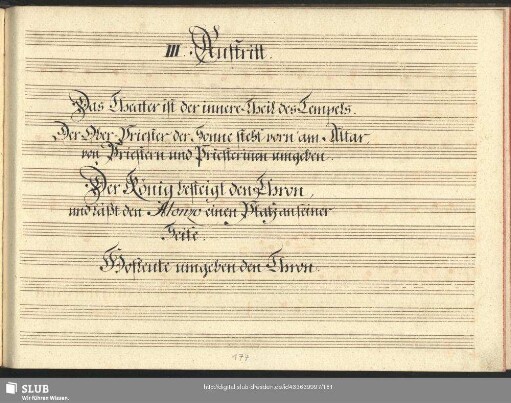 III. Auftritt.
Das Theater ist der innere Theil des Tempels.
Der Ober-Priester der Sonne steht vorn am Altar,
von Priestern und Priesterinen umgeben.
Der König besteigt den Thron,
und läßt den Alonzo einen Platz an seiner
Seite.
Hofleute umgeben den Thron.
177
SLUB
Wir führen Wissen.